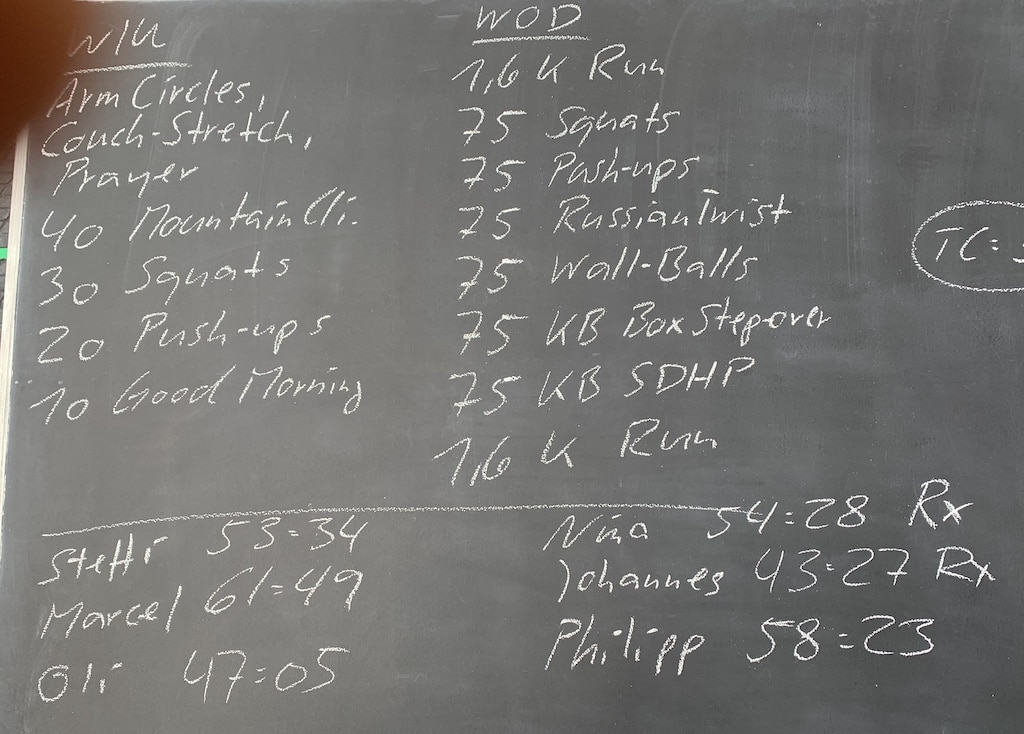 W/U
Arm Circles,
Couch-Stretch,
Prayer
40 Mountain Cli.
30 Squats
20 Push-ups
10 Good Morning
WOD
1,6 K Run
75 Squats
75 Push-ups
75 Russian Twist
75 Wall-Balls
75 KB Box Step-over
75 KB SDHP
1,6 K Run
TC:
Steffi 53:34
Marcel 61:49
Oli 47:05
Nina 54:28 Rx
Johannes 43:27 Rx
Philipp 58:23